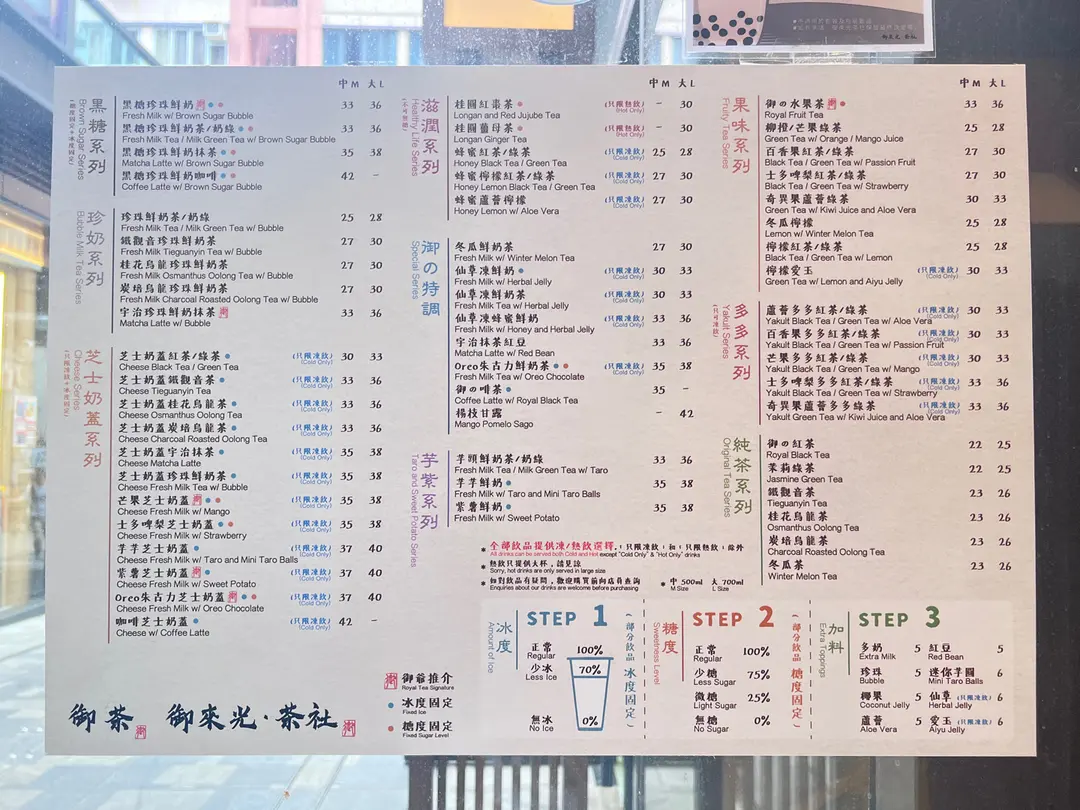 中M 大L
黑糖系列
Brown Sugar Series
(甜度固定+冰度固定)
黑糖珍珠鮮奶 33 36
Fresh Milk w/ Brown Sugar Bubble
黑糖珍珠鮮奶茶/奶綠 33 36
Fresh Milk Tea / Milk Green Tea w/ Brown Sugar Bubble
黑糖珍珠鮮奶抹茶 35 38
Matcha Latte w/ Brown Sugar Bubble
黑糖珍珠鮮奶咖啡 42 -
Coffee Latte w/ Brown Sugar Bubble
珍奶系列
Bubble Milk Tea Series
珍珠鮮奶茶/奶綠 25 28
Fresh Milk Tea / Milk Green Tea w/ Bubble
鐵觀音珍珠鮮奶茶 27 30
Fresh Milk Tieguanyin Tea w/ Bubble
桂花烏龍珍珠鮮奶茶 27 30
Fresh Milk Osmanthus Oolong Tea w/ Bubble
炭焙烏龍珍珠鮮奶茶 27 30
Fresh Milk Charcoal Roasted Oolong Tea w/ Bubble
宇治珍珠鮮奶抹茶 33 36
Matcha Latte w/ Bubble
芝士奶蓋系列
Cheese Series
芝士奶蓋紅茶/綠茶 (只限凍飲) (Cold Only) 30 33
Cheese Black Tea / Green Tea
芝士奶蓋鐵觀音茶 (只限凍飲) (Cold Only) 33 36
Cheese Tieguanyin Tea
芝士奶蓋桂花烏龍茶 (只限凍飲) (Cold Only) 33 36
Cheese Osmanthus Oolong Tea
芝士奶蓋炭焙烏龍茶 (只限凍飲) (Cold Only) 33 36
Cheese Charcoal Roasted Oolong Tea
芝士奶蓋宇治抹茶 (只限凍飲) (Cold Only) 35 38
Cheese Matcha Latte
芝士奶蓋珍珠鮮奶茶 (只限凍飲) (Cold Only) 35 38
Cheese Fresh Milk Tea w/ Bubble
芒果芝士奶蓋 (只限凍飲) (Cold Only) 35 38
Cheese Fresh Milk w/ Mango
士多啤梨芝士奶蓋 (只限凍飲) (Cold Only) 35 38
Cheese Fresh Milk w/ Strawberry
芋芋芝士奶蓋 (只限凍飲) (Cold Only) 37 40
Cheese Fresh Milk w/ Taro and Mini Taro Balls
紫薯芝士奶蓋 (只限凍飲) (Cold Only) 37 40
Cheese Fresh Milk w/ Sweet Potato
Oreo朱古力芝士奶蓋 (只限凍飲) (Cold Only) 37 40
Cheese Fresh Milk w/ Oreo Chocolate
咖啡芝士奶蓋 (只限凍飲) (Cold Only) 42 -
Cheese w/ Coffee Latte
御茶 御來光·茶社
御爺推介
Royal Tea Signature
冰度固定
Fixed Ice
糖度固定
Fixed Sugar Level
中M 大L
滋潤系列
Healthy Life Series
桂圓紅棗茶 (只限熱飲) (Hot Only) - 30
Longan and Red Jujube Tea
桂圓薑母茶 (只限熱飲) (Hot Only) - 30
Longan Ginger Tea
蜂蜜紅茶/綠茶 (只限凍飲) (Cold Only) 25 28
Honey Black Tea / Green Tea
蜂蜜檸檬紅茶/綠茶 (只限凍飲) (Cold Only) 27 30
Honey Lemon Black Tea / Green Tea
蜂蜜蘆薈檸檬 (只限凍飲) (Cold Only) 27 30
Honey Lemon w/ Aloe Vera
御の特調
Special Series
冬瓜鮮奶茶 27 30
Fresh Milk w/ Winter Melon Tea
仙草凍鮮奶 (只限凍飲) (Cold Only) 30 33
Fresh Milk w/ Herbal Jelly
仙草凍鮮奶茶 (只限凍飲) (Cold Only) 30 33
Fresh Milk Tea w/ Herbal Jelly
仙草凍蜂蜜鮮奶 (只限凍飲) (Cold Only) 33 36
Fresh Milk w/ Honey and Herbal Jelly
宇治抹茶紅豆 33 36
Matcha Latte w/ Red Bean
Oreo朱古力鮮奶茶 (只限凍飲) (Cold Only) 35 38
Fresh Milk Tea w/ Oreo Chocolate
御の啡茶 35 -
Coffee Latte w/ Royal Black Tea
楊枝甘露 - 42
Mango Pomelo Sago
芋紫系列
Taro and Sweet Potato Series
芋頭鮮奶茶/奶綠 33 36
Fresh Milk Tea / Milk Green Tea w/ Taro
芋芋鮮奶 35 38
Fresh Milk w/ Taro and Mini Taro Balls
紫薯鮮奶 35 38
Fresh Milk w/ Sweet Potato
中M 大L
果味系列
Fruity Tea Series
御の水果茶 33 36
Royal Fruit Tea
柳橙/芒果綠茶 25 28
Green Tea w/ Orange / Mango Juice
百香果紅茶/綠茶 27 30
Black Tea / Green Tea w/ Passion Fruit
士多啤梨紅茶/綠茶 27 30
Black Tea / Green Tea w/ Strawberry
奇異果蘆薈綠茶 30 33
Green Tea w/ Kiwi Juice and Aloe Vera
冬瓜檸檬 25 28
Lemon w/ Winter Melon Tea
檸檬紅茶/綠茶 25 28
Black Tea / Green Tea w/ Lemon
檸檬愛玉 (只限凍飲) (Cold Only) 30 33
Green Tea w/ Lemon and Aiyu Jelly
多多系列
Yakult Series
蘆薈多多紅茶/綠茶 (只限凍飲) (Cold Only) 30 33
Yakult Black Tea / Green Tea w/ Aloe Vera
百香果多多紅茶/綠茶 (只限凍飲) (Cold Only) 30 33
Yakult Black Tea / Green Tea w/ Passion Fruit
芒果多多紅茶/綠茶 (只限凍飲) (Cold Only) 30 33
Yakult Black Tea / Green Tea w/ Mango
士多啤梨多多紅茶/綠茶 (只限凍飲) (Cold Only) 33 36
Yakult Black Tea / Green Tea w/ Strawberry
奇異果蘆薈多多綠茶 (只限凍飲) (Cold Only) 33 36
Yakult Green Tea w/ Kiwi Juice and Aloe Vera
純茶系列
Original Tea Series
御の紅茶 22 25
Royal Black Tea
茉莉綠茶 22 25
Jasmine Green Tea
鐵觀音茶 23 26
Tieguanyin Tea
桂花烏龍茶 23 26
Osmanthus Oolong Tea
炭焙烏龍茶 23 26
Charcoal Roasted Oolong Tea
冬瓜茶 23 26
Winter Melon Tea
* 全部飲品提供凍/熱飲選擇,「只限凍飲」和「只限熱飲」除外
All drinks can be served both Cold and Hot except "Cold Only" & "Hot Only" drinks
* 熱飲只提供大杯,請見諒
Sorry, hot drinks are only served in large size
* 如對飲品有疑問,歡迎購買前向店員查詢 * 中 500ml 大 700ml
Enquiries about our drinks are welcome before purchasing M Size L Size
冰度
Amount of Ice
STEP 1
正常 100%
Regular
少冰 70%
Less Ice
無冰 0%
No Ice
(部分飲品冰度固定)
糖度
Sweetness Level
STEP 2
正常 100%
Regular
少糖 75%
Less Sugar
微糖 25%
Light Sugar
無糖 0%
No Sugar
(部分飲品糖度固定)
加料
Extra Toppings
STEP 3
多奶 5 紅豆 5
Extra Milk Red Bean
珍珠 5 迷你芋圓 6
Bubble Mini Taro Balls
椰果 5 仙草 (只限凍飲) 6
Coconut Jelly Herbal Jelly
蘆薈 5 愛玉 (只限凍飲) 6
Aloe Vera Aiyu Jelly